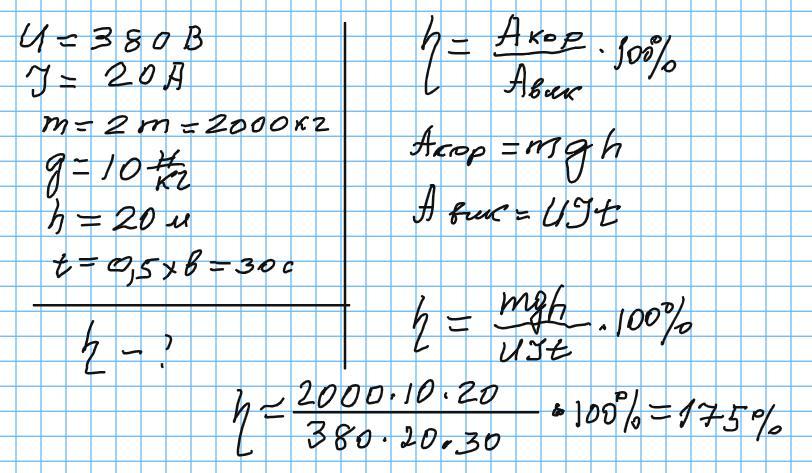 U = 380 В
I = 20 А
m = 2 т = 2000 кг
g = 10 Н/кг
h = 20 м
t = 0,5 хв = 30 с
η - ?
η = Aкор/Aвик · 100%
Aкор = mgh
Aвик = UIt
η = mgh/UIt · 100%
η = 2000·10·20/380·20·30 · 100% = 175%